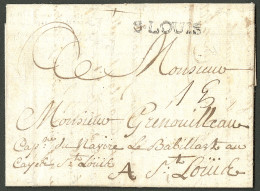 S.LOUIS
Monsieur
15
Monsieur Grenouilleau
Cap.ne du Navire Le Babillard au
Cayes St. Loüik
A St. Loüik